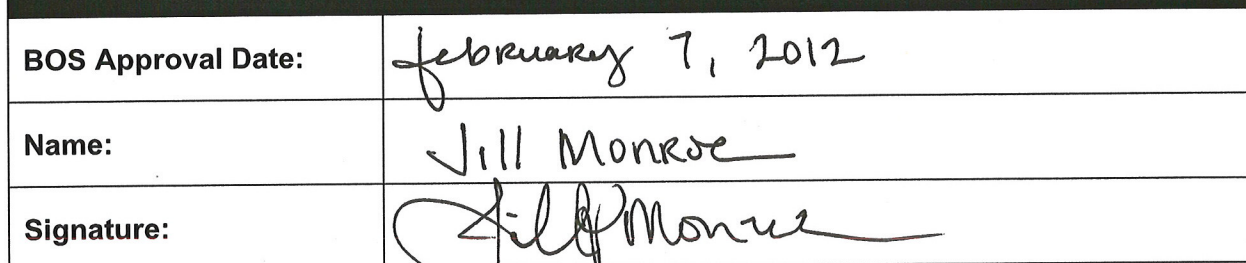 BOS Approval Date: february 7, 2012
Name: Jill Monroe
Signature: Jill Monroe